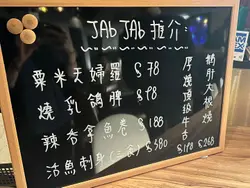 JAb JAb 推介:
粟米天婦羅 $78
燒乳鴿脾 $98
辣杏拿魚卷 $188
活魚刺身(三食) $580
厚燒頂級牛舌 $198
鵝肝大根燒 $268